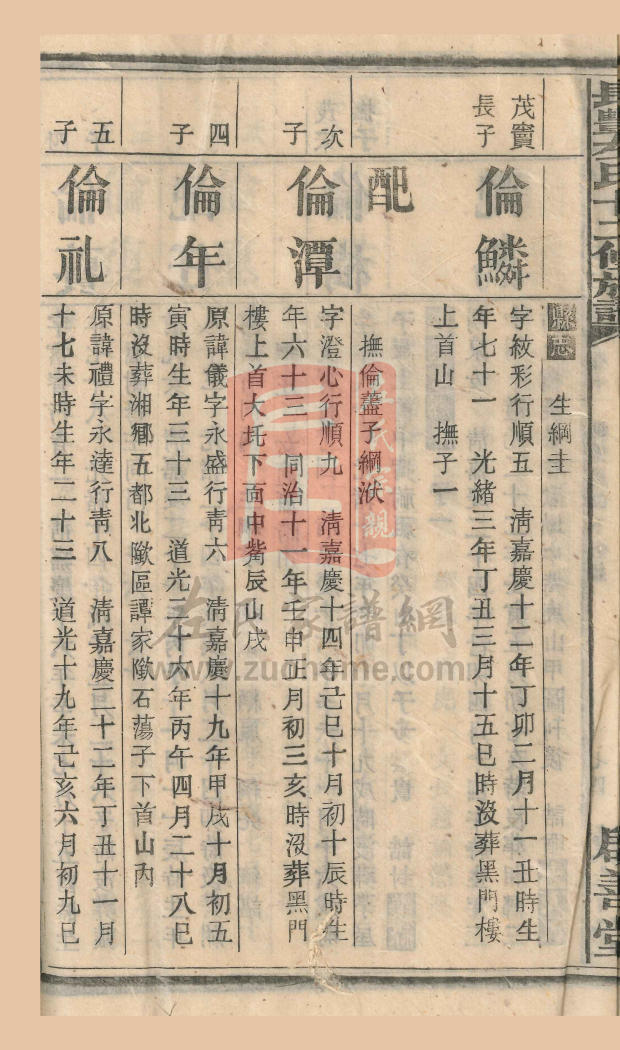 長豐左氏十二修族譜
啟善堂
縣志
生綱圭
茂竇
長子
倫鱗
字紋彩行順五 清嘉慶十二年丁卯二月十一丑時生
年七十一 光緒三年丁丑三月十五巳時沒葬黑門樓
上首山 撫子一
配
撫倫藎子綱洑
次
子
倫潭
字澄心行順九 清嘉慶十四年己巳十月初十辰時生
年六十三 同治十一年壬申正月初三亥時沒葬黑門
樓上首大圫下面中嘴辰山戌
四
子
倫年
原諱儀字永盛行青六 清嘉慶十九年甲戌十月初五
寅時生年三十三 道光二十六年丙午四月二十八巳
時沒葬湘鄉五都北歐區譚家歐石蕩子下首山內
五
子
倫礼
原諱禮字永達行青八 清嘉慶二十二年丁丑十一月
十七未時生年二十三 道光十九年己亥六月初九巳
左氏家譜網
www.zuohome.com